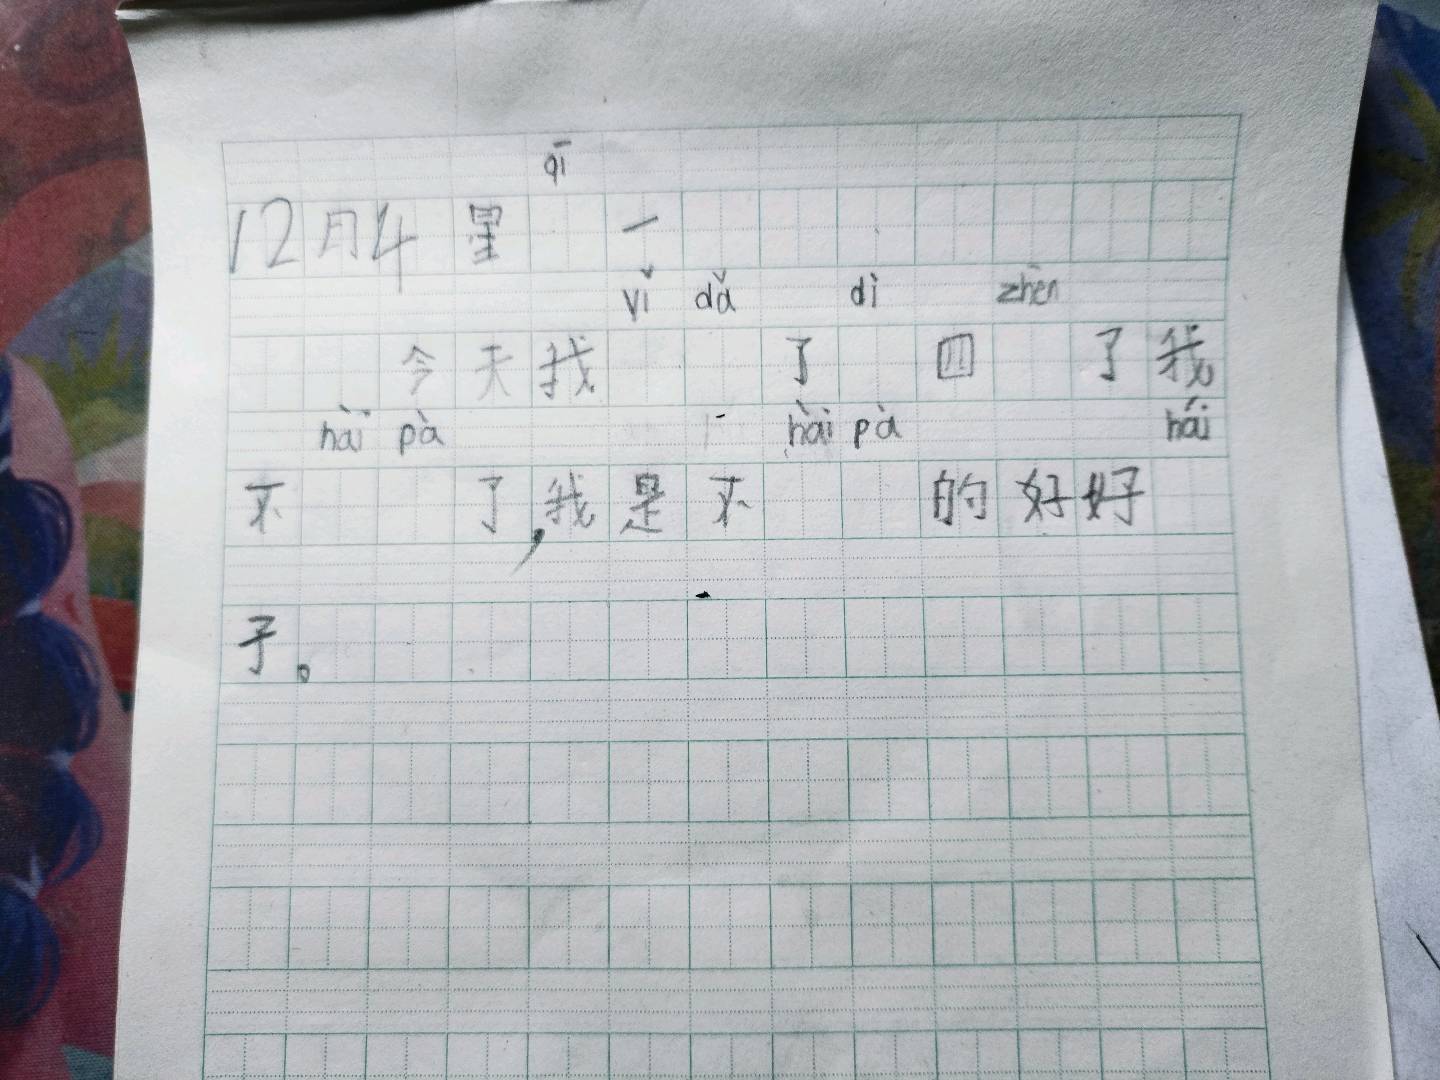 qī
12月4 星 一
yǐ dǎ dì zhēn
今天我 了 四 了我
hài pà hài pà hái
不 了,我是不 的好好
子。